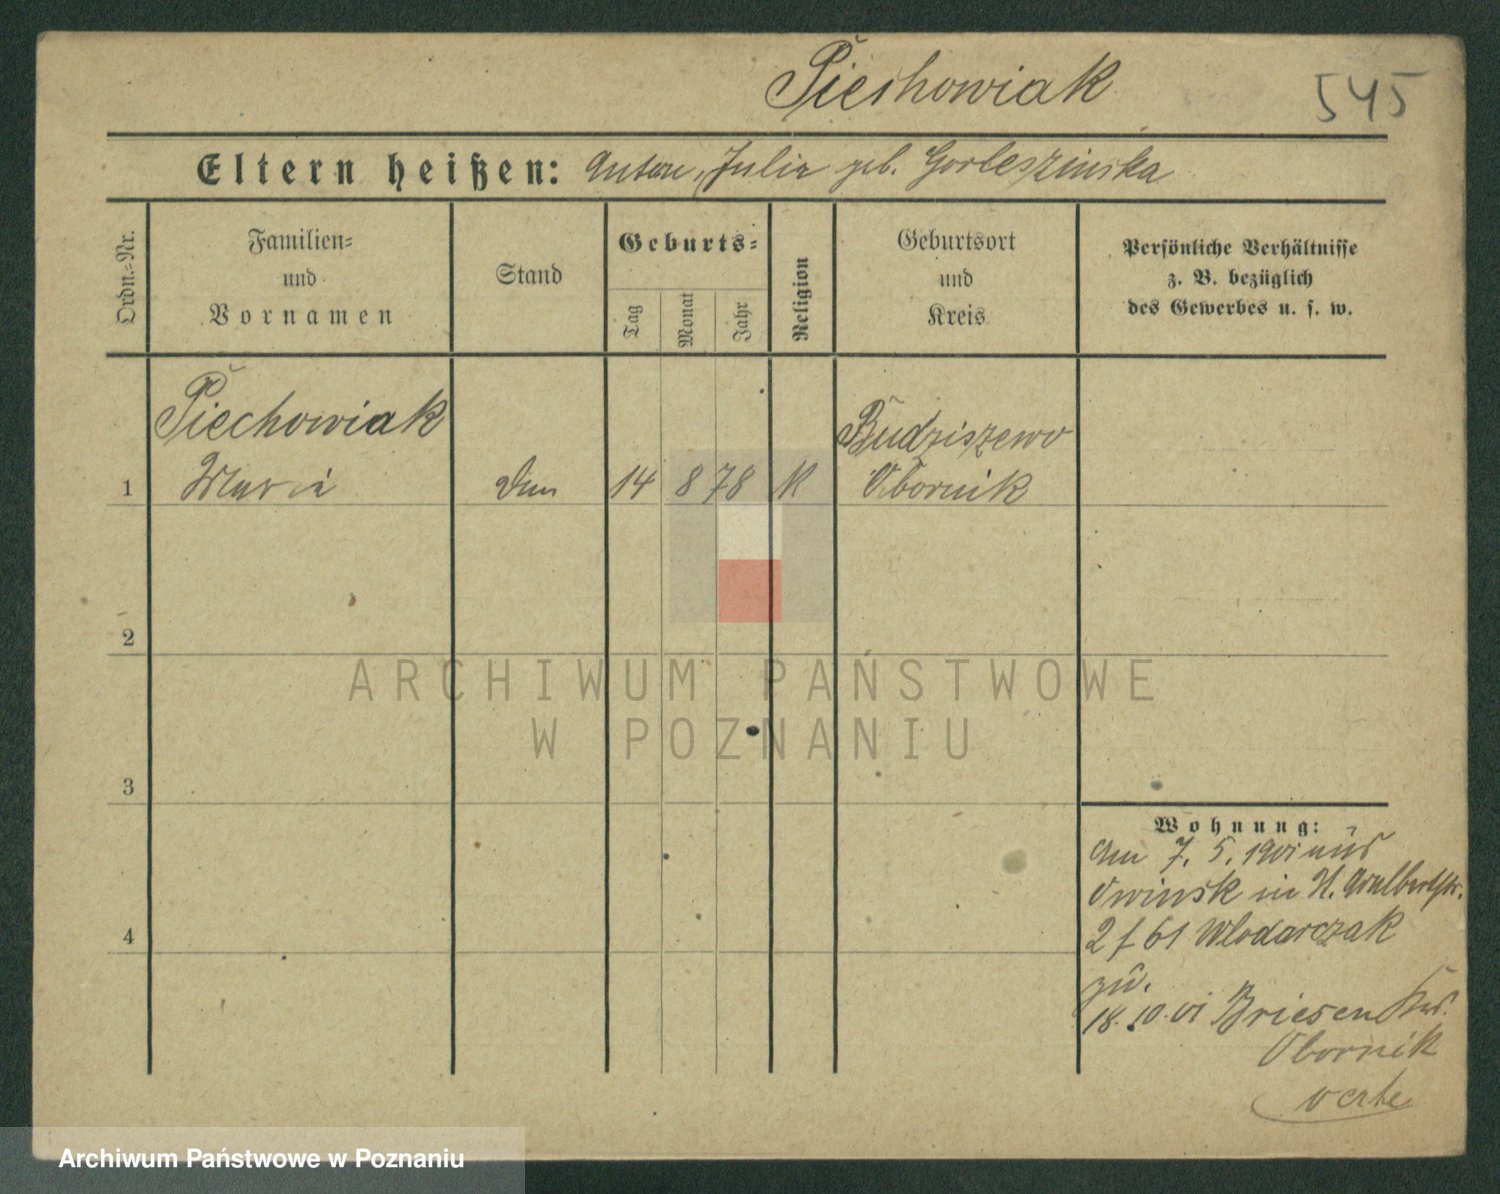 Piechowiak
545
Eltern heißen: Anton, Julia geb. Gorleszinska
Ordn.=Nr.
Familien=
und
Vornamen
Stand
Geburts=
Tag
Monat
Jahr
Religion
Geburtsort
und
Kreis
Persönliche Verhältnisse
z. B. bezüglich
des Gewerbes u. s. w.
Piechowiak
Budziszewo
1 Maria 14 8 78 K Obornik
2
3
4
Wohnung:
Am 7. 5. 1901 aus
Owinsk in H. Adalbertstr.
2 f 61 Wlodarczak
zu.
18. 10. 01 Briesen Krs.
Obornik
verte
ARCHIWUM PAŃSTWOWE
W POZNANIU
Archiwum Państwowe w Poznaniu